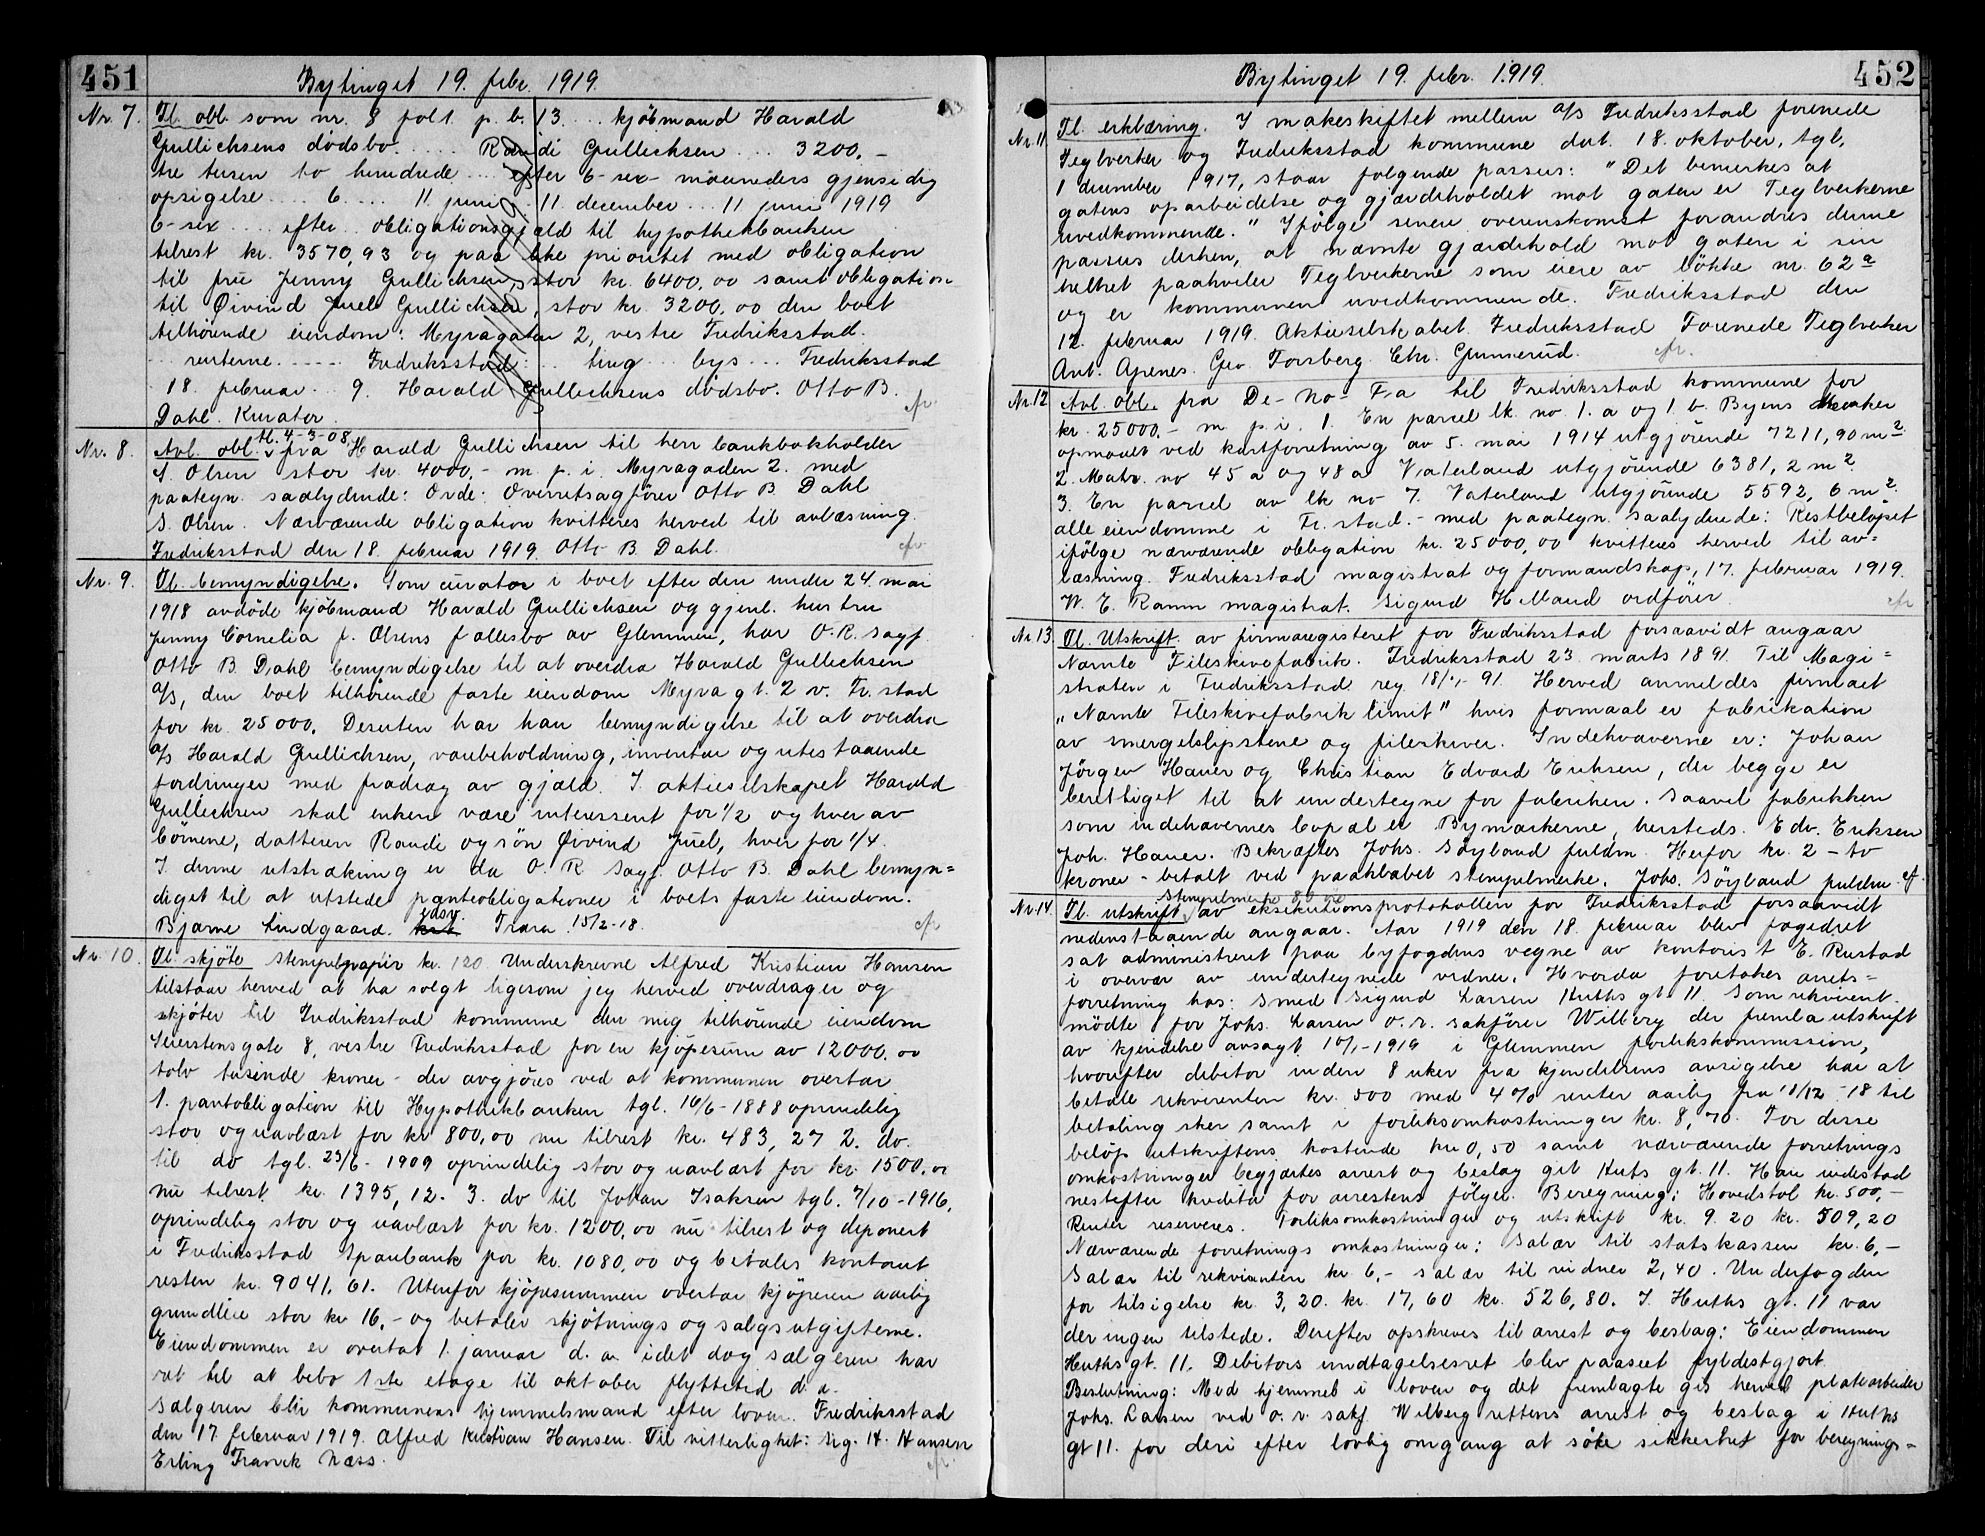 451
Bytinget 19. febr. 1919.
Nr. 7. Tl. obl. som nr. 8 fol 1. p. b. 13 ... kjöbmand Harald
Gullichsens dödsbo. ..... Randi Gullichsen ... 3200,-
tre tusen to hundrede ... efter 6-sex- maaneders gjensidig
opsigelse .... 6 .... 11 juni .. 11 december ... 11 juni 1919
6-sex .... efter .. obligationsgjæld til hypothekbanken
tilrest kr. 3570,93 og paa like prioritet med obligation
til fru Jenny Gullichsen, stor kr. 6400,00 samt obligation
til Öivind Juel Gullichsen, stor kr. 3200,00 den boet
tilhörende eiendom: Myragaten 2, vestre Fredriksstad.
... renterne ..... Fredriksstad ... ting .. bys ... Fredriksstad
18. februar ... 9. Harald Gullichsens dödsbo. Otto B.
Dahl. Kurator. cfr.
Nr. 8. Avl. obl. tl. 4-3-08, fra Harald Gullichsen til herr bankbokholder
S. Olsen stor kr. 4000,- m. p. i. Myragaden 2. med
paategn. saalydende: Ovde: Overretsagförer Otto B. Dahl
S. Olsen. Nærværende obligation kvitteres herved til avlæsning.
Fredriksstad den 18. februar 1919. Otto B. Dahl. cfr.
Nr. 9. Tl. bemyndigelse. Som curator i boet efter den under 24 mai
1918 avdöde kjöbmand Harald Gullichsen og gjenl. hustru
Jenny Cornelia f. Olsens fællesbo av Glemmen, har O. R. sagf.
Otto B. Dahl bemyndigelse til at overdra Harald Gullichsen
A/S, den boet tilhörende faste eiendom Myra gt. 2 v. Fr. stad
for kr. 25000. Desuten har han bemyndigelse til at overdra
A/S Harald Gullichsen, varebeholdning, inventar og utestaaende
fordringer med fradrag av gjæld. I aktieselskapet Harald
Gullichsen skal enken være interessent for 1/2 og hver av
börnene, datteren Randi og sön Öivind Juel, hver for 1/4.
I denne utstrækning er da O. R. sagf. Otto B. Dahl bemyn=
diget til at utstede panteobligationer i boets faste eiendom.
Bjarne Lindgaard. Trara 15/2-18. cfr
Nr. 10. Tl. skjöte stempelpapir kr. 120 Underskrevne Alfred Kristian Hansen
tilstaar herved at ha solgt ligesom jeg herved overdrager og
skjöter til Fredriksstad kommune den mig tilhörende eiendom
Seierstensgate 8, vestre Fredriksstad for en kjöpesum av 12000.00
tolv tusende kroner - der avgjöres ved at kommunen overtar
1. pantobligation til Hypothekbanken tgl. 16/6-1888 oprindelig
stor og uavlæst for kr 800,00 nu tilrest kr. 483,27 2. do.
til do tgl. 23/6-1909 oprindelig stor og uavlæst for kr. 1500.00
nu tilrest kr. 1395,12. 3. do til Johan Isaksen tgl. 7/10-1916,
oprindelig stor og uavlæst for kr. 1200,00 nu tilrest og deponert
i Fredriksstad Sparebank for kr. 1080,00 og betales kontant
resten kr. 9041,61. Utenfor kjöpesummen overtar kjöperen aarlig
grundleie stor kr 16,- og betaler skjötnings og salgsutgifterne.
Eiendommen er overtat 1. januar d. a. idet dog sælgeren har
ret til at bebo 1ste etage til oktober flyttetid d. a.
Sælgeren blir kommunens hjemmelsmand efter loven. Fredriksstad
den 17. februar 1919. Alfred Kristian Hansen. Til vitterlighet: Sig. H. Hansen
Erling Franck Næss. cfr.
452
Bytinget 19. febr. 1919.
Nr. 11. Tl. erklæring. I makeskiftet mellem A/S Fredriksstad forenede
Teglverker og Fredriksstad kommune dat. 18. oktober, tgl.
1 december 1917, staar følgende passus: "Det bemerkes at
gatens oparbeidelse og gjærdeholdet mot gaten er Teglverkerne
uvedkommende." Ifölge senere overenskomst forandres denne
passus derhen, at nævnte gjærdehold mot gaten i sin
helhet paahviler Teglverkerne som eiere av lökke nr. 62a
og er kommunen uvedkommende. Fredriksstad den
12. februar 1919. Aktieselskabet Fredriksstad Forenede Teglverker
Ant. Apenes. Geo Forsberg. Chr. Gunnerud. cfr.
Nr. 12 Avl. obl. fra De- No- Fa til Fredriksstad kommune for
kr. 25000,- m. p. i. 1. En parcel lk. no. 1. a og 1. b. Byens Marker
opmaalt ved kartforretning av 5. mai 1914 utgjörende 7211,90 m2
2. Matr. no 45 a og 48 a Vaterland utgjörende 6381,2 m2
3. En parcel av lk no 7. Vaterland utgjörende 5592,6 m2
alle eiendomme i Fr. stad. - med paategn. saalydende: Restbelöpet
ifölge nærværende obligation kr. 25000,00 kvitteres herved til av=
læsning. Fredriksstad magistrat og formandskap, 17. februar 1919.
W. E. Ramm magistrat. Sigurd H. Maud ordförer. cfr
Nr. 13. Tl. Utskrift. av firmaregisteret for Fredriksstad forsaavidt angaar
Namte Fileskivefabrik. Fredriksstad 23. marts 1891. Til Magi=
straten i Fredriksstad reg 91. Herved anmeldes firmaet
"Namte Fileskivefabrik limit" hvis formaal er fabrikation
av smergelslipstene og fileskiver. Indehaverne er: Johan
Jörgen Hauer og Christian Edvard Eriksen, der begge er
berettiget til at undertegne for fabriken. Saavel fabrikken
som indehavernes bopæl er Bymarkerne, hersteds. Edv. Eriksen
Joh. Hauer. Bekræftes Johs. Söyland fuldm. Herfor kr. 2 - to
kroner - betalt ved paaklabet stempelmerke. Johs. Söyland fuldm. cfr.
Stempelmerke 80 öre
Nr. 14. Tl. utskrift av eksekutionsprotokollen for Fredriksstad forsaavidt
nedenstaaende angaar. Aar 1919 den 18. februar blev fogedret
sat administreret paa byfogdens vegne av kontorist E. Rustad
i overvær av undertegnede vidner. Hvorda foretokes arrest=
forretning hos: Smed Sigurd Larsen Huths gt. 11. Som rekvirent
mödte for Johs. Larsen o. r. sakförer Wilberg der fremla utskrift
av kjendelse avsagt 10/1-1919 i Glemmen forlikskommission,
hvorefter debitor inden 8 uker fra kjendelsens avsigelse har at
betale rekvirenten kr. 500 med 4% renter aarlig fra 11/12-18 til
betaling sker samt i forliksomkostninger kr. 8,70. For disse
belöp utskriftens kostende kr. 0,50 samt nærværende forretnings
omkostninger begjærtes arrest og beslag git Huts gt. 11. Han indestod
nestefter kreditor for arrestens fölger. Beregning: Hovedstol kr. 500,-
Renter reserveres. Forliksomkostninger og utskrift kr. 9.20 kr. 509,20
Nærværende forretnings omkostninger: Salær til statskassen kr. 6,-
Salær til rekvirenten kr 6,- salær til vidner 2,40. Underfogden
for tilsigelse kr. 3,20. kr. 17,60 kr. 526,80. I Huths gt. 11 var
der ingen tilstede. Derefter opskreves til arrest og beslag: Eiendommen
Huthsgt. 11. Debitors undtagelsesret blev paaseet fyldestgjort.
Beslutning: Med hjemmel i loven og det fremlagte gis herved platearbeider
Johs. Larsen ved o. r. sakf. Wilberg rettens arrest og beslag i Huths
gt 11. for deri efter lovlig omgang at söke sikkerhet for beregnings=